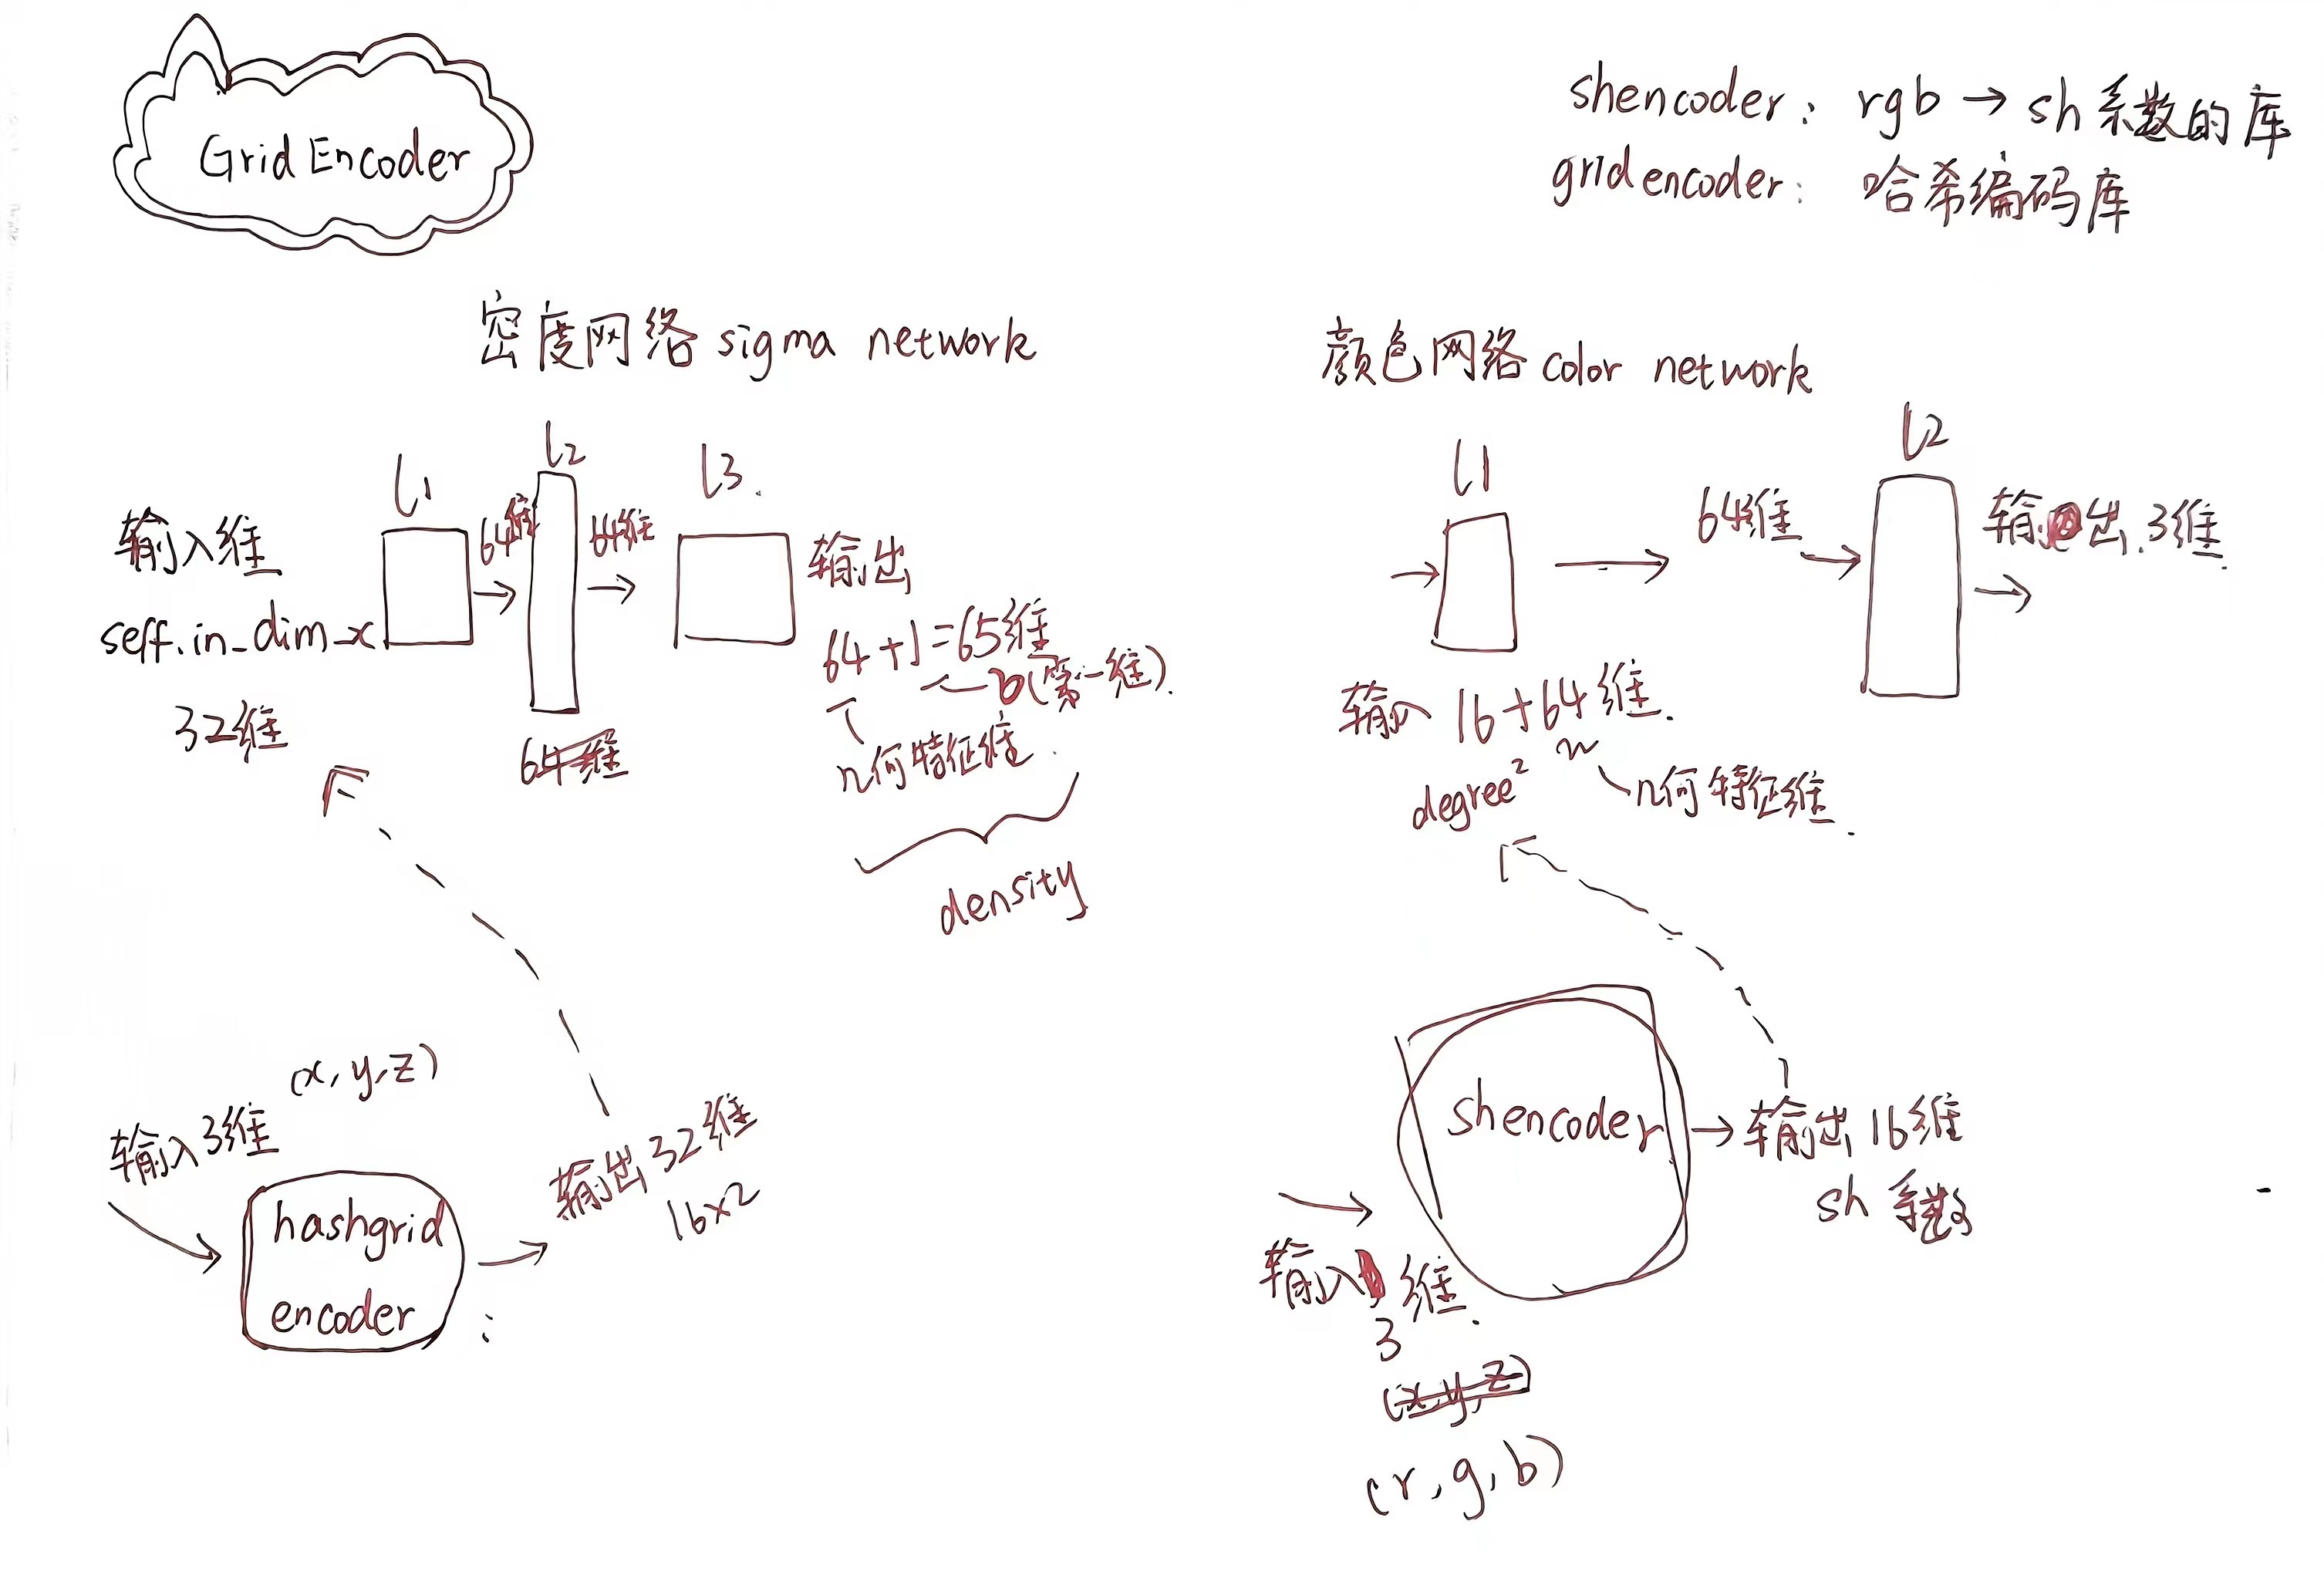 Grid Encoder
shencoder: rgb → sh系数的库
gridencoder: 哈希编码库
密度网络 sigma network
l1
l2
l3.
输入维
self.in_dim_x
32维
64维
→
64维
→
64维
输出
64+1=65维
←6(第一维).
几何特征维.
density
(x,y,z)
输入3维
hashgrid
encoder
→
输出32维
16×2
颜色网络 color network
l1
l2
→
→
64维
→
输出.3维.
→
输入 16+64维.
degree²
几何特征维.
shencoder
→ 输出16维
sh 系数
→
输入 维.
3
(x,y,z)
(r,g,b)